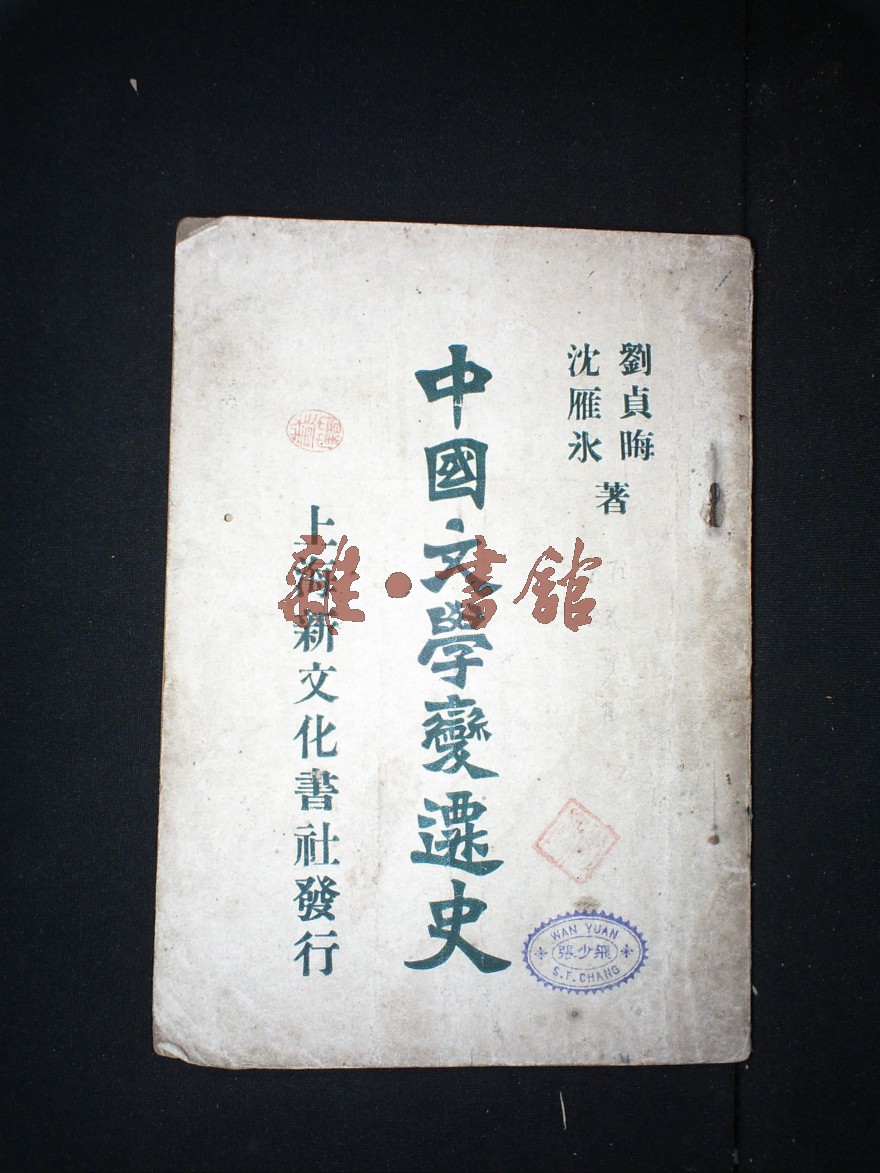 劉貞晦
沈雁氷
著
中國文學變遷史
上海新文化書社發行
雜·書館
WAN YUAN
張少飛
S.F. CHANG